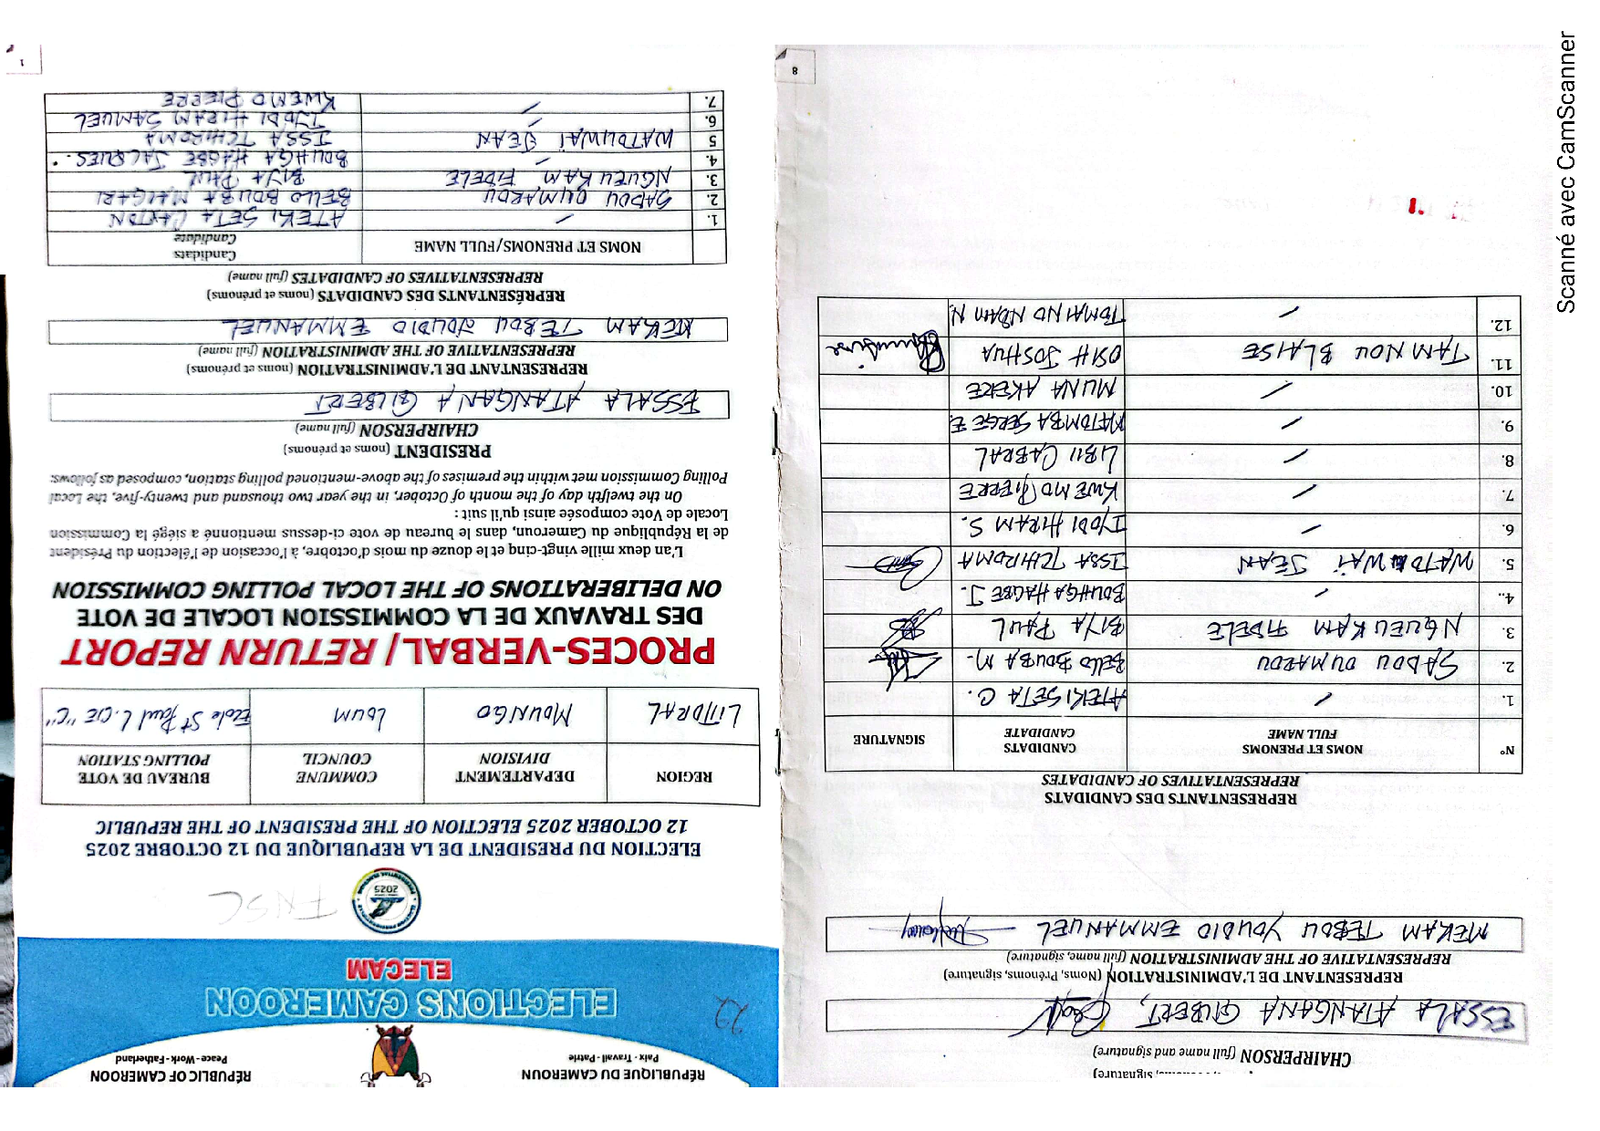 RÉPUBLIQUE DU CAMEROUN
Paix - Travail - Patrie
RÉPUBLIC OF CAMEROON
Peace - Work - Fatherland
22
ELECTIONS CAMEROON
ELECAM
2025
ELECTION DU PRESIDENT DE LA REPUBLIQUE DU 12 OCTOBRE 2025
12 OCTOBER 2025 ELECTION OF THE PRESIDENT OF THE REPUBLIC
REGION DEPARTEMENT DIVISION COMMUNE COUNCIL BUREAU DE VOTE POLLING STATION
LITTORAL MOUNGO LOUM Ecole St Paul L. CIE "C"
PROCES-VERBAL/ RETURN REPORT
DES TRAVAUX DE LA COMMISSION LOCALE DE VOTE
ON DELIBERATIONS OF THE LOCAL POLLING COMMISSION
L'an deux mille vingt-cinq et le douze du mois d'octobre, à l'occasion de l'élection du Président
de la République du Cameroun, dans le bureau de vote ci-dessus mentionné a siégé la Commission
Locale de Vote composée ainsi qu'il suit :
On the twelfth day of the month of October, in the year two thousand and twenty-five, the Local
Polling Commission met within the premises of the above-mentioned polling station, composed as follows:
PRESIDENT (noms et prénoms)
CHAIRPERSON (full name)
ESSALA ATANGANA GILBERT
REPRESENTANT DE L'ADMINISTRATION (noms et prénoms)
REPRESENTATIVE OF THE ADMINISTRATION (full name)
MEKAM TEBOU YOUDIO EMMANUEL
REPRÉSENTANTS DES CANDIDATS (noms et prénoms)
REPRESENTATIVES OF CANDIDATES (full name)
NOMS ET PRENOMS/FULL NAME Candidats Candidate
1. / ATEKI SETA CAXTON
2. SADOU OUMAROU BELLO BOUBA MAIGARI
3. NGUEUKAM FIDELE BIYA PAUL
4. / BOUHGA HAGBE JACQUES.
5 WATOUWAI JEAN ISSA TCHIROMA
6. / IYODI HIRAM SAMUEL
7. / KWEMO PIERRE
1
CHAIRPERSON (full name and signature)
ESSALA ATANGANA GILBERT,
REPRESENTANT DE L'ADMINISTRATION (Noms, Prénoms, signature)
REPRESENTATIVE OF THE ADMINISTRATION (full name, signature)
MEKAM TEBOU YOUDIO EMMANUEL
REPRESENTANTS DES CANDIDATS
REPRESENTATIVES OF CANDIDATES
N° NOMS ET PRENOMS FULL NAME CANDIDATS CANDIDATE SIGNATURE
1. / ATEKI SETA C.
2. SADOU OUMAROU BELLO BOUBA M.
3. NGUEUKAM FIDELE BIYA PAUL
4.. / BOUHGA HAGBE J.
5. WATOUWAI JEAN ISSA TCHIROMA
6. / IYODI HIRAM S.
7. / KWEMO PIERRE
8. / LIBII CABRAL
9. / MATOMBA SERGE E.
10. / MUNA AKERE
11. TAMNOU BLAISE OSIH JOSHUA
12. / TOMAINO NDAM N.
8
Scanné avec CamScanner